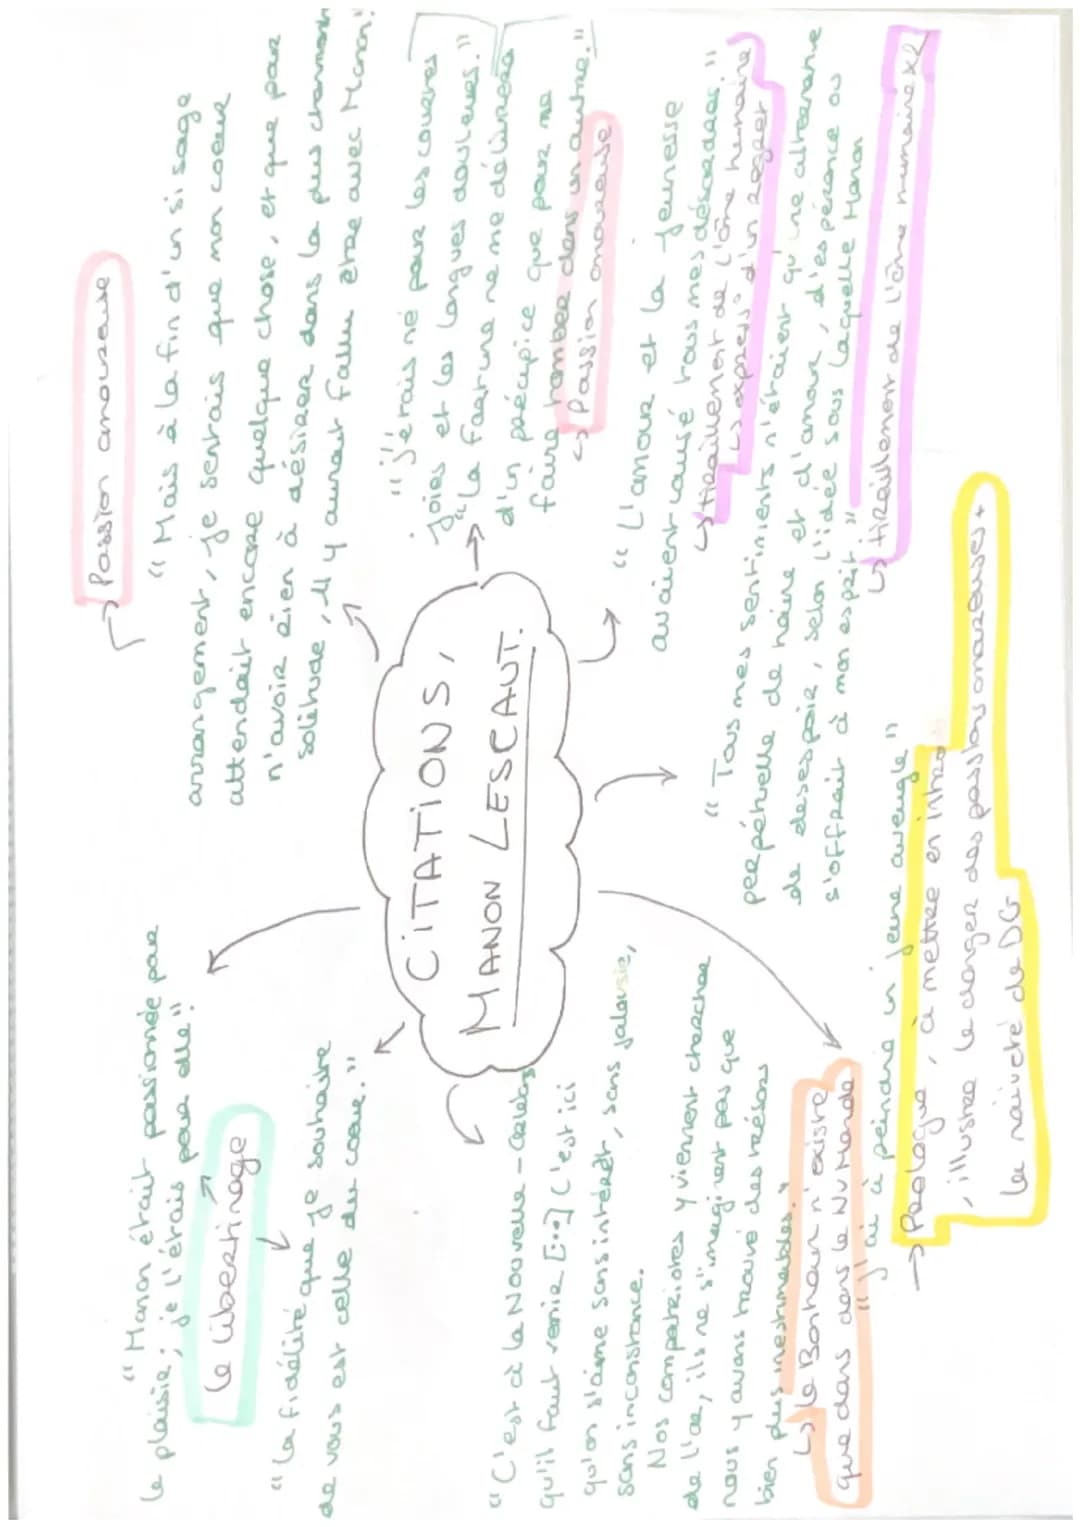 CITATIONS,
MANON LESCAUT.
"Manon était passionée pour
le plaisir ; je l'étais pour elle."
le libertinage
"la fidélité que je souhaite
de vous est celle du coeur."
→ Passion amoureuse
"Mais à la fin d'un si sage
arrangement, je sentais que mon coeur
attendait encore quelque chose, et que pour
n'avoir rien à désirer dans la plus charmante
solitude, il y aurait fallu être avec Manon"
"j'étais né pour les courtes
joies et les longues douleurs."
"la fortune ne me délivrera
d'un précipice que pour me
faire tomber dans un autre."
↳ Passion amoureuse
"L'amour et la jeunesse
avaient causé tous mes désordres"
↳ tiraillement de l'âme humaine
↳ express° d'un regret
"Tous mes sentiments n'étaient qu'une alternative
perpétuelle de haine et d'amour, d'espérance ou
de desespoir, selon l'idée sous laquelle Manon
s'offrait à mon esprit"
↳ tiraillement de l'âme humaine x2
"C'est à la Nouvelle-Orléans
qu'il faut venir [...] C'est ici
qu'on s'aime sans intérêt, sans jalousie,
sans inconstance.
Nos compatriotes y viennent chercher
de l'or, ils ne s'imaginent pas que
nous y avons trouvé des trésors
bien plus inestimables."
↳ le Bonheur n'existe
que dans dans le Nv Monde
"j'ai à peindre un jeune aveugle"
→ Prologue, à mettre en intro
, illustre le danger des passions amoureuses +
la naïveté de DG